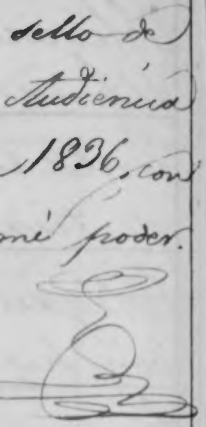 sello de
Audiencia
1836, con
mi poder.